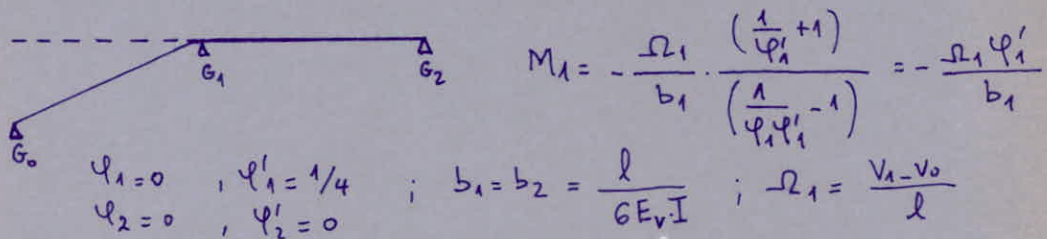 G₀ G₁ G₂
M₁ = - Ω₁/b₁ · (1/φ'₁ + 1)/(1/(φ₁φ'₁) - 1) = - Ω₁φ'₁/b₁
φ₁ = 0 , φ'₁ = 1/4 ; b₁ = b₂ = l/(6EᵥI) ; Ω₁ = (V₁ - V₀)/l
φ₂ = 0 , φ'₂ = 0